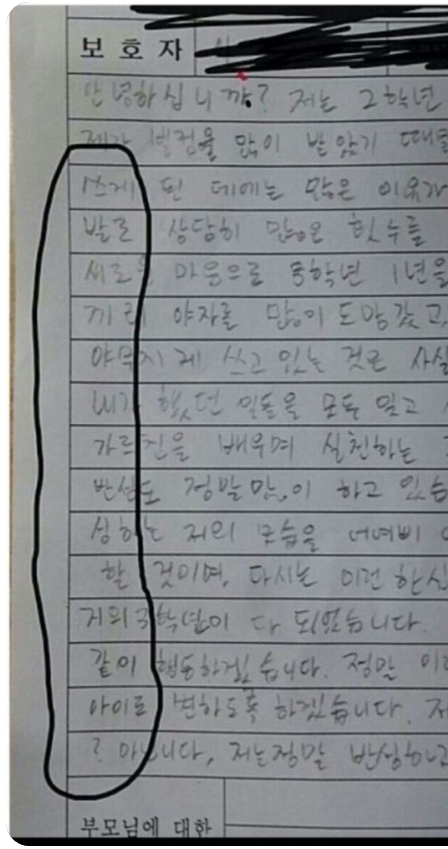 보호자
안녕하십니까? 저는 2학년
제가 벌점을 많이 받았기 때문
쓰게 된 데에는 많은 이유가
발로 상당히 많은 횟수를
새로운 마음으로 3학년 1년을
끼리 야자를 많이 도망갔고
야무지게 쓰고 있는 것은 사실
내가 했던 일들을 모두 잊고
가르침을 배우며 실천하는
반성도 정말 많이 하고 있습
성하는 저의 모습을 너여삐
할 것이며, 다시는 이런 한심
저의 3학년이 다 되었습니다.
같이 행동하겠습니다. 정말 이
아이로 변하도록 하겠습니다. 저
? 아닙니다, 저는 정말 반성하고
부모님에 대한